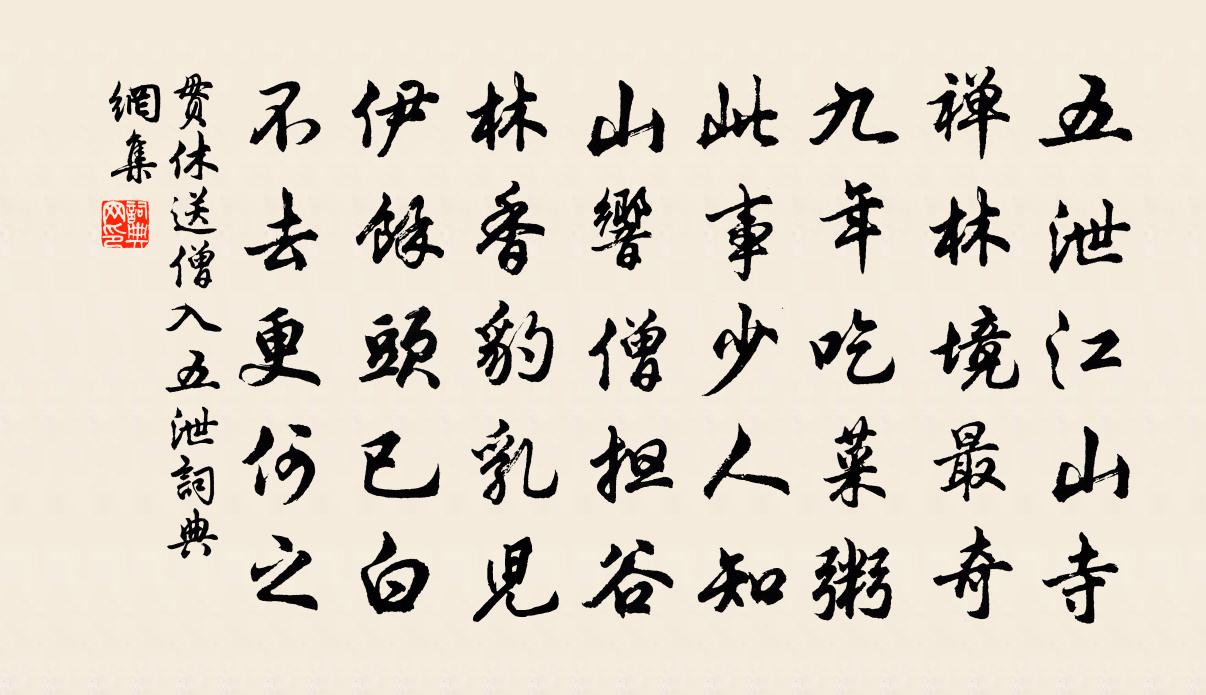 五泄江山寺
禅林境最奇
九年吃菜粥
此事少人知
山響僧担谷
林香豹乳児
伊餘頭已白
不去更何之
貫休送僧入五泄詞典
網集
詞典
网印